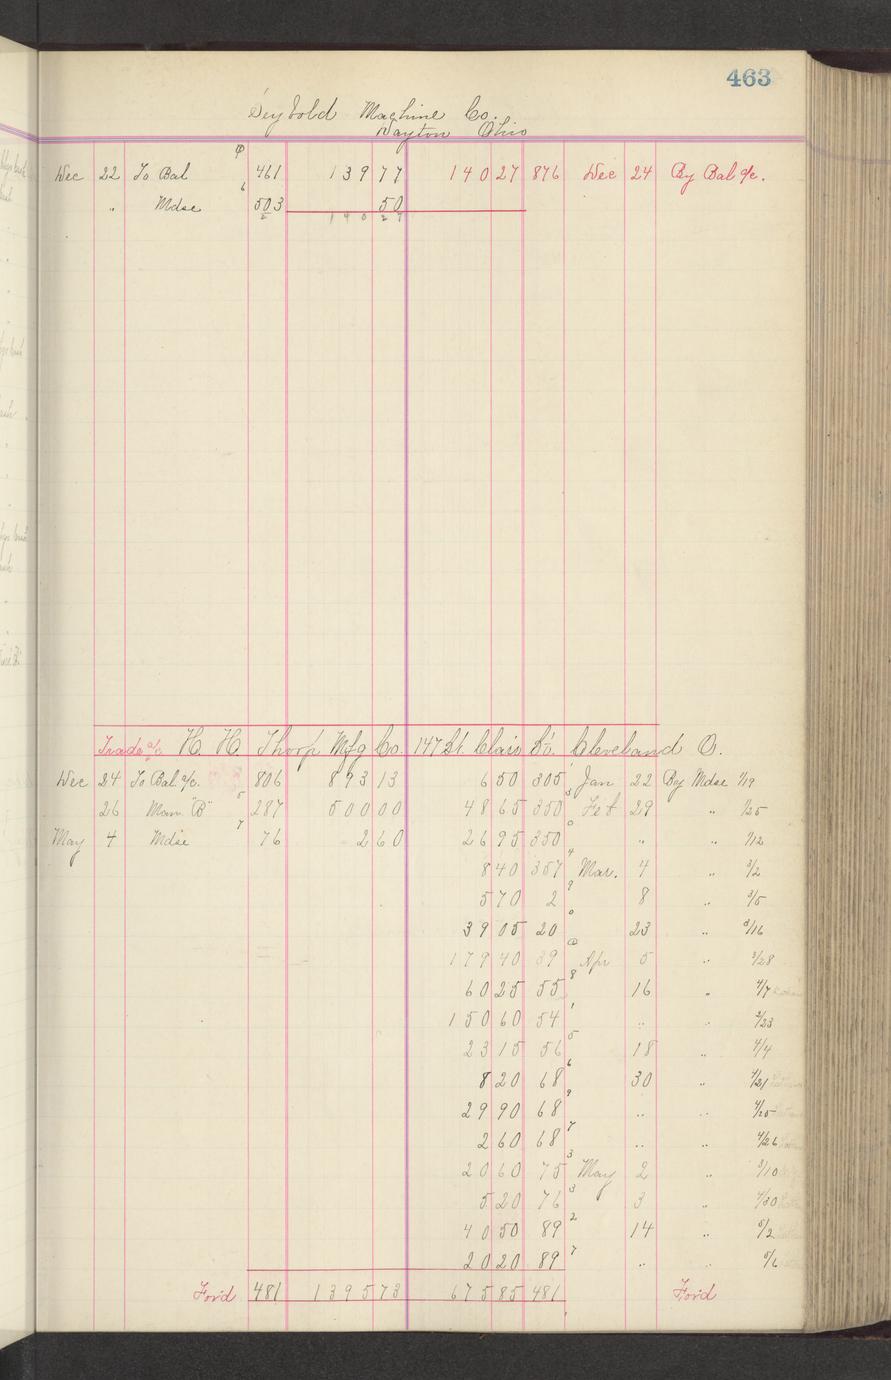 463
Seybold Machine Co.
Dayton Ohio
Dec 22 To Bal 461 139 77 140 27 876 Dec 24 By Bal a/c.
" Mdse 503 50
140 27
Trade a/c H. H. Thorp Mfg Co. 147 St. Clair St. Cleveland O.
Dec 24 To Bal. a/c. 806 893 13 6 50 305 Jan 22 By Mdse 1/19
26 Mam "B" 287 500 00 48 65 350 Feb 29 " 1/25
May 4 Mdse 76 2 60 26 95 350 " " 1/12
8 40 357 Mar. 4 " 3/2
5 70 2 8 " 3/5
39 05 20 23 " 3/16
179 40 39 Apr 5 " 3/28
60 25 55 16 " 4/7
150 60 54 " " 3/23
23 15 56 18 " 4/4
8 20 68 30 " 4/21
29 90 68 " " 4/25
2 60 68 " " 4/26
20 60 75 May 2 " 3/10
5 20 76 3 " 4/30
40 50 89 14 " 5/2
20 20 89 " " 5/6
For'd 481 1395 73 675 85 481 For'd